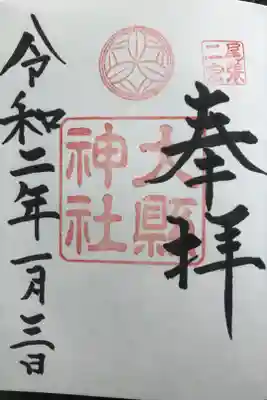 奉拝
尾張
二宮
大縣
神社
令和二年一月三日